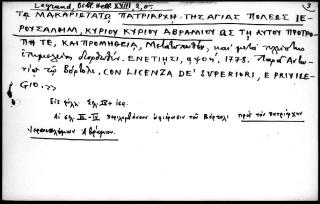 Legrand, Bibl. Hell. XVIII, 2, σ. 3
ΤΩ ΜΑΚΑΡΙΩΤΑΤΩ ΠΑΤΡΙΑΡΧΗ ΤΗΣ ΑΓΙΑΣ ΠΟΛΕΩΣ ΙΕ-
ΡΟΥΣΑΛΗΜ, ΚΥΡΙΟΥ ΚΥΡΙΟΥ ΑΒΡΑΜΙΟΥ ΩΣ ΤΗ ΑΥΤΟΥ ΠΡΟΤΡΟ-
ΠΗ ΤΕ, ΚΑΙ ΠΡΟΜΗΘΕΙΑ, Μετατυπωθέν, καὶ μετὰ πλείστης
ἐπιμελείας διορθωθέν. ΕΝΕΤΙΗΣΙ, αψογ΄. 1773. Παρὰ Ἀντω-
νίῳ τῷ Βόρτολι. CON LICENZA DE' SUPERIORI, E PRIVILE-
GIO.>>
Εἰς
Αἱ σελ. III-IV περιλαμβάνουν ἀφιέρωσιν τοῦ Βόρτολι πρὸς τὸν πατριάρχην
Ἱεροσολύμων Ἀβράμιον.